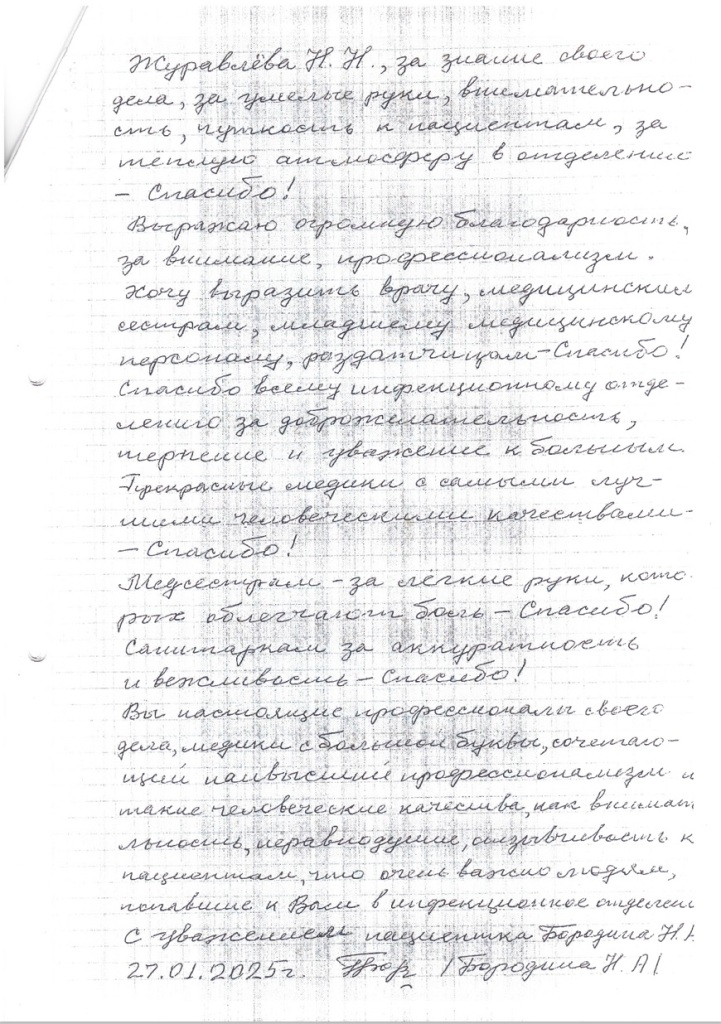 Журавлёва Н. Н., за знание своего
дела, за умелые руки, внимательно-
сть, чуткость к пациентам, за
тёплую атмосферу в отделении
– Спасибо!
Выражаю огромную благодарность,
за внимание, профессионализм.
Хочу выразить врачу, медицинским
сестрам, младшему медицинскому
персоналу, раздатчицам – Спасибо!
Спасибо всему инфекционному отде-
лению за доброжелательность,
терпение и уважение к больным.
Прекрасные медики с самыми луч-
шими человеческими качествами –
– Спасибо!
Медсестрам – за лёгкие руки, кото
рых облегчают боль – Спасибо!
Санитаркам за аккуратность
и вежливость – Спасибо!
Вы настоящие профессионалы своего
дела, медики с большой буквы, сочетаю-
щий наивысший профессионализм и
такие человеческие качества, как внимат
льность, неравнодушие, отзывчивость к
пациентам, что очень важно людям,
попавшие к Вам в инфекционное отделен
С уважением пациентка Бородина Н.А.
27.01.2025г. /Бородина Н. А/